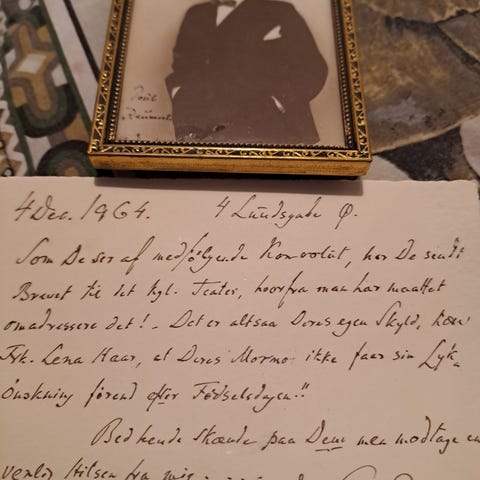 Poul
Reumert
4 Dec. 1964. 4 Lundsgade Ø.
Som De ser af medfølgende Konvolut, har De sendt
Brevet til det kgl. Teater, hvorfra man har maattet
omadressere det! - Det er altsaa Deres egen Skyld, kære
Frk. Lena Haar, at Deres Mormo ikke faar sin Lyk-
ønskning førend efter Fødselsdagen!!
Bed hende skænde paa Dem men modtage en
venlig Hilsen fra mig